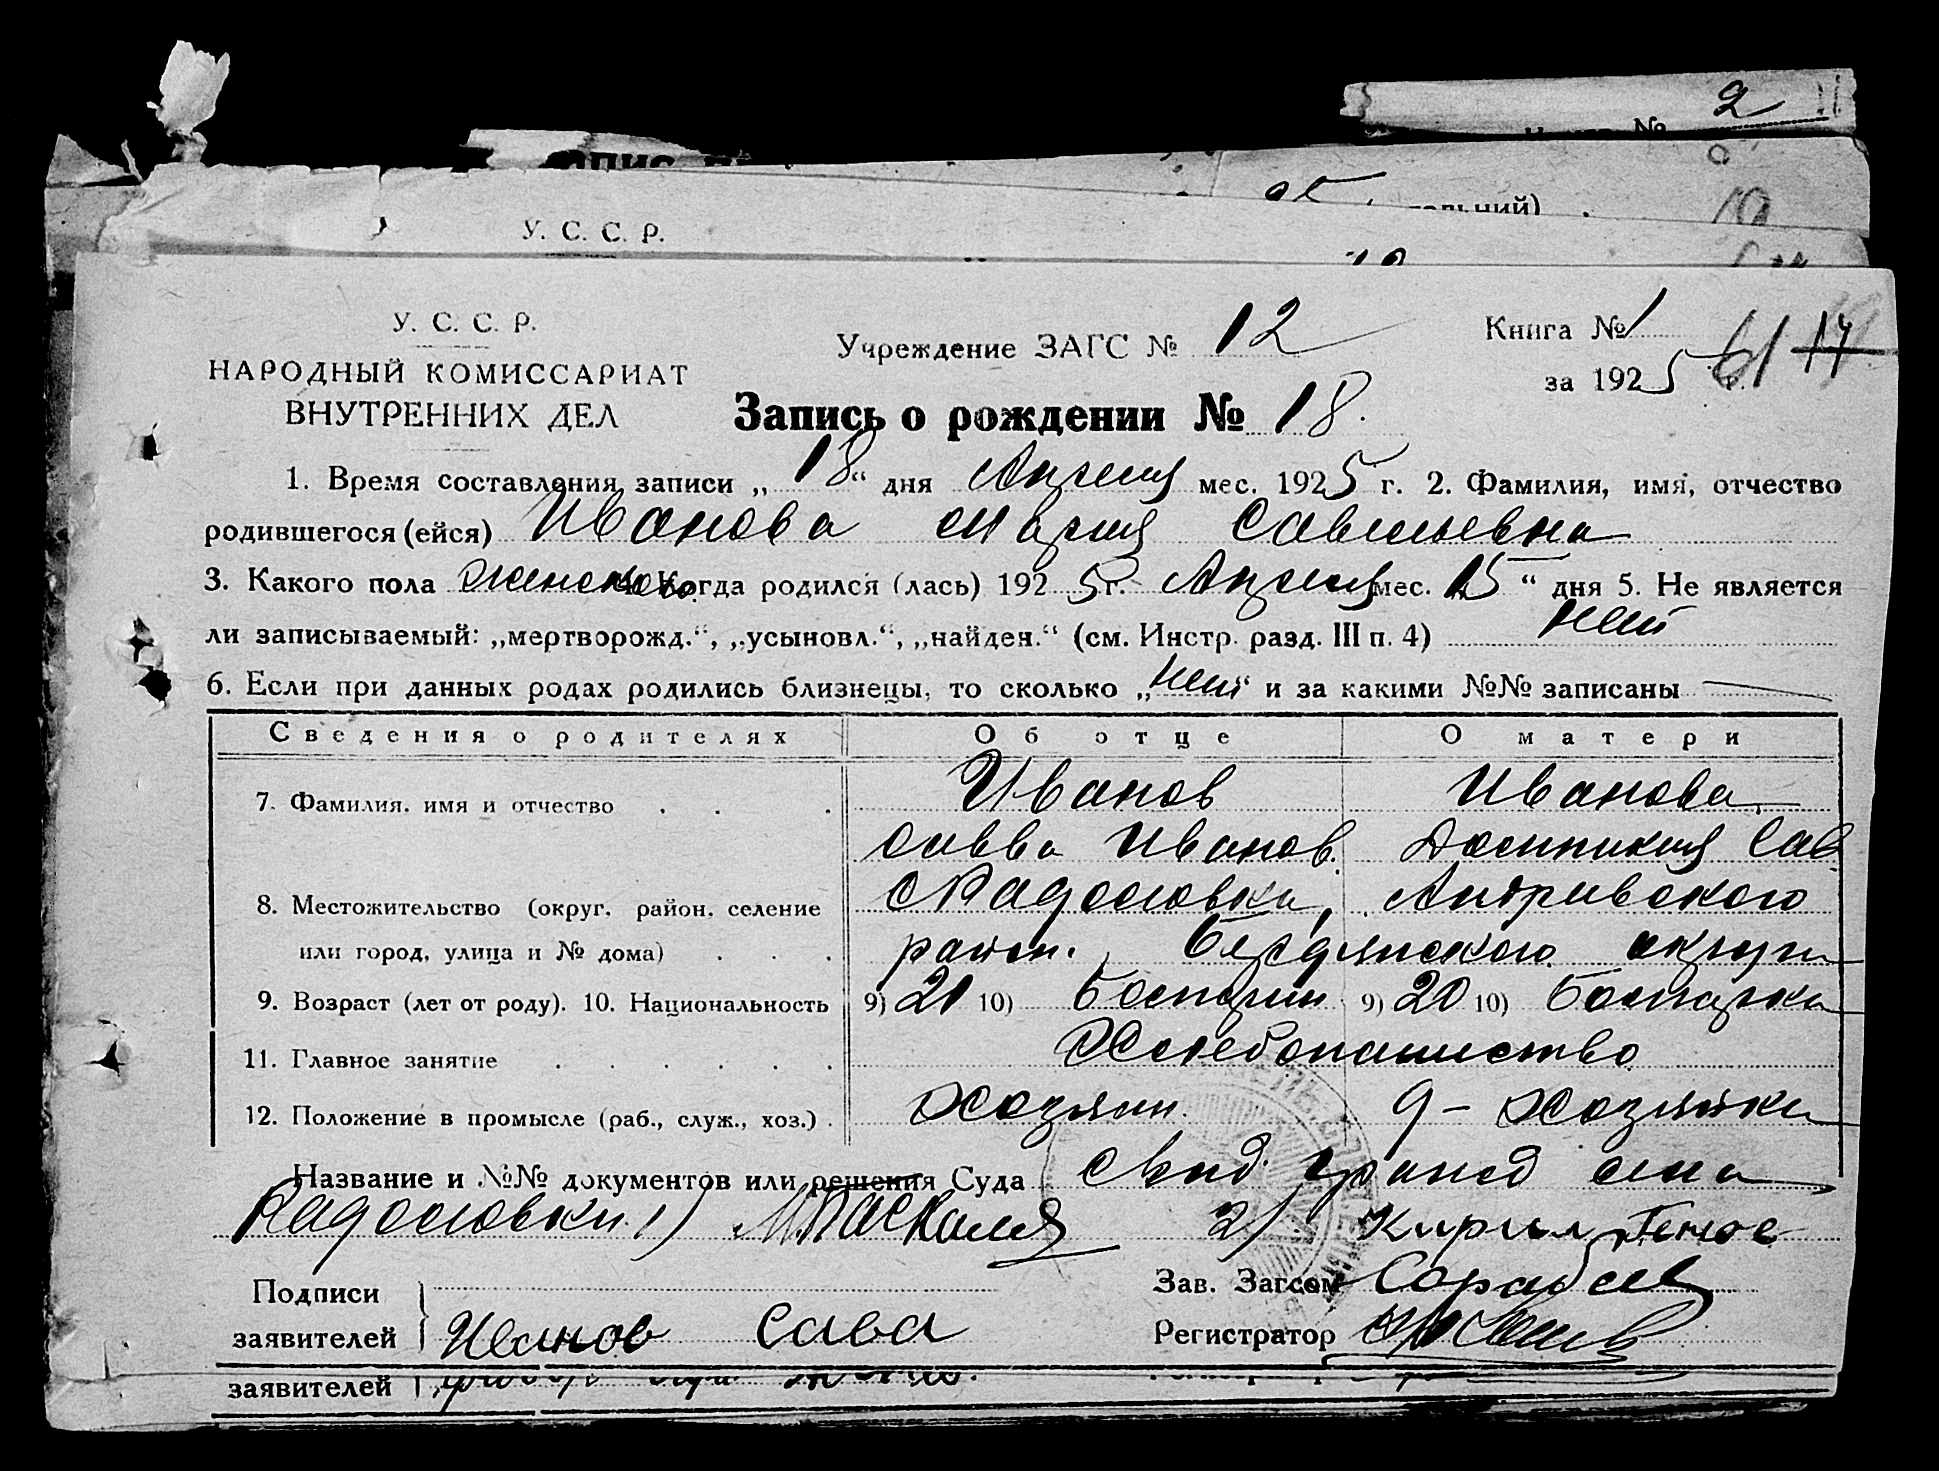 2
опис
льний)
У. С. С. Р.
У. С. С. Р.
НАРОДНЫЙ КОМИССАРИАТ
ВНУТРЕННИХ ДЕЛ
Учреждение ЗАГС № 12
Книга № 1
за 1925 г. 61 14
Запись о рождении № 18.
1. Время составления записи „18“ дня Апреля мес. 1925 г. 2. Фамилия, имя, отчество
родившегося (ейся) Иванова Мария Савельевна
3. Какого пола женского 4. Когда родился (лась) 1925 г. Апреля мес. „15“ дня 5. Не является
ли записываемый: „мертворожд.“, „усыновл.“, „найден.“ (см. Инстр. разд. III п. 4) нет
6. Если при данных родах родились близнецы, то сколько „нет“ и за какими №№ записаны
Сведения о родителях Об отце О матери
7. Фамилия, имя и отчество Иванов Иванова
Савва Иванов. Домникия Сав
8. Местожительство (округ, район, селение с Радоловка, Андривского
или город, улица и № дома) район. Бердянского округи
9. Возраст (лет от роду). 10. Национальность 9) 21 10) Болгрин 9) 20 10) Болгарка
11. Главное занятие Хлебопашество
12. Положение в промысле (раб., служ., хоз.) Хозяин. 9 – Хозяйка
Название и №№ документов или решения Суда
Радоловки 1) 2) Кирил
Подписи
заявителей Иванов Сава
Зав. Загсом
Регистратор
заявителей